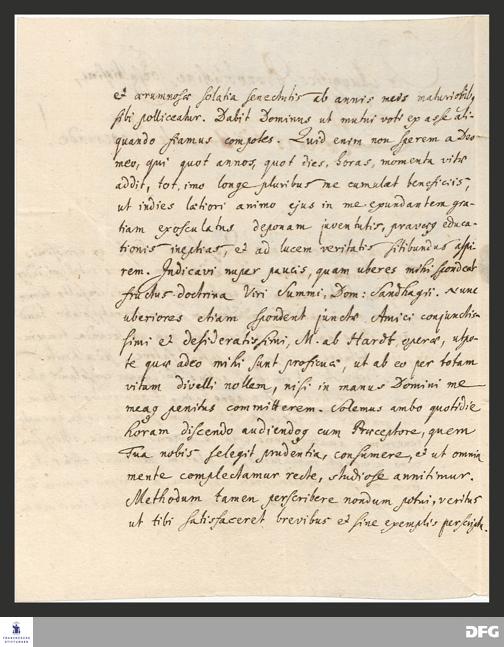 et ærumnosæ solatia senectutis ab annis meis maturioribus
sibi polliceatur. Dabit Dominus ut mutui voti ex asse ali-
quando fiamus compotes. Quid enim non sperem a Deo
meo, qui quot annos, quot dies, horas, momenta vitæ
addit, tot, imo longe pluribus me cumulat beneficiis,
ut indies lætiori animo ejus in me exundantem gra-
tiam exosculatus deponam juventutis, pravæq educa-
tionis ineptias, et ad lucem veritatis sitibundus aspi-
rem. Indicavi nuper paucis, quam uberes mihi spondeat
fructus doctrina Viri Summi, Dom: Sandhagii. Nunc
uberiores etiam spondent junctæ Amici conjunctis-
simi et desideratissimi, M. ab Hardt operæ, utpo-
te quæ adeo mihi sunt proficuæ, ut ab eo per totam
vitam divelli nollem, nisi in manus Domini me
meaq penitus committerem. Solemus ambo quotidie
horam discendo audiendoq cum Præceptore, quem
Tua nobis selegit prudentia, consumere, et ut omnia
mente complectamur recte, studiose annitimur.
Methodum tamen perscribere nondum potui, veritus
ut tibi satisfaceret brevibus et sine exemplis perscripta.
FRANCKESCHE
STIFTUNGEN
DFG